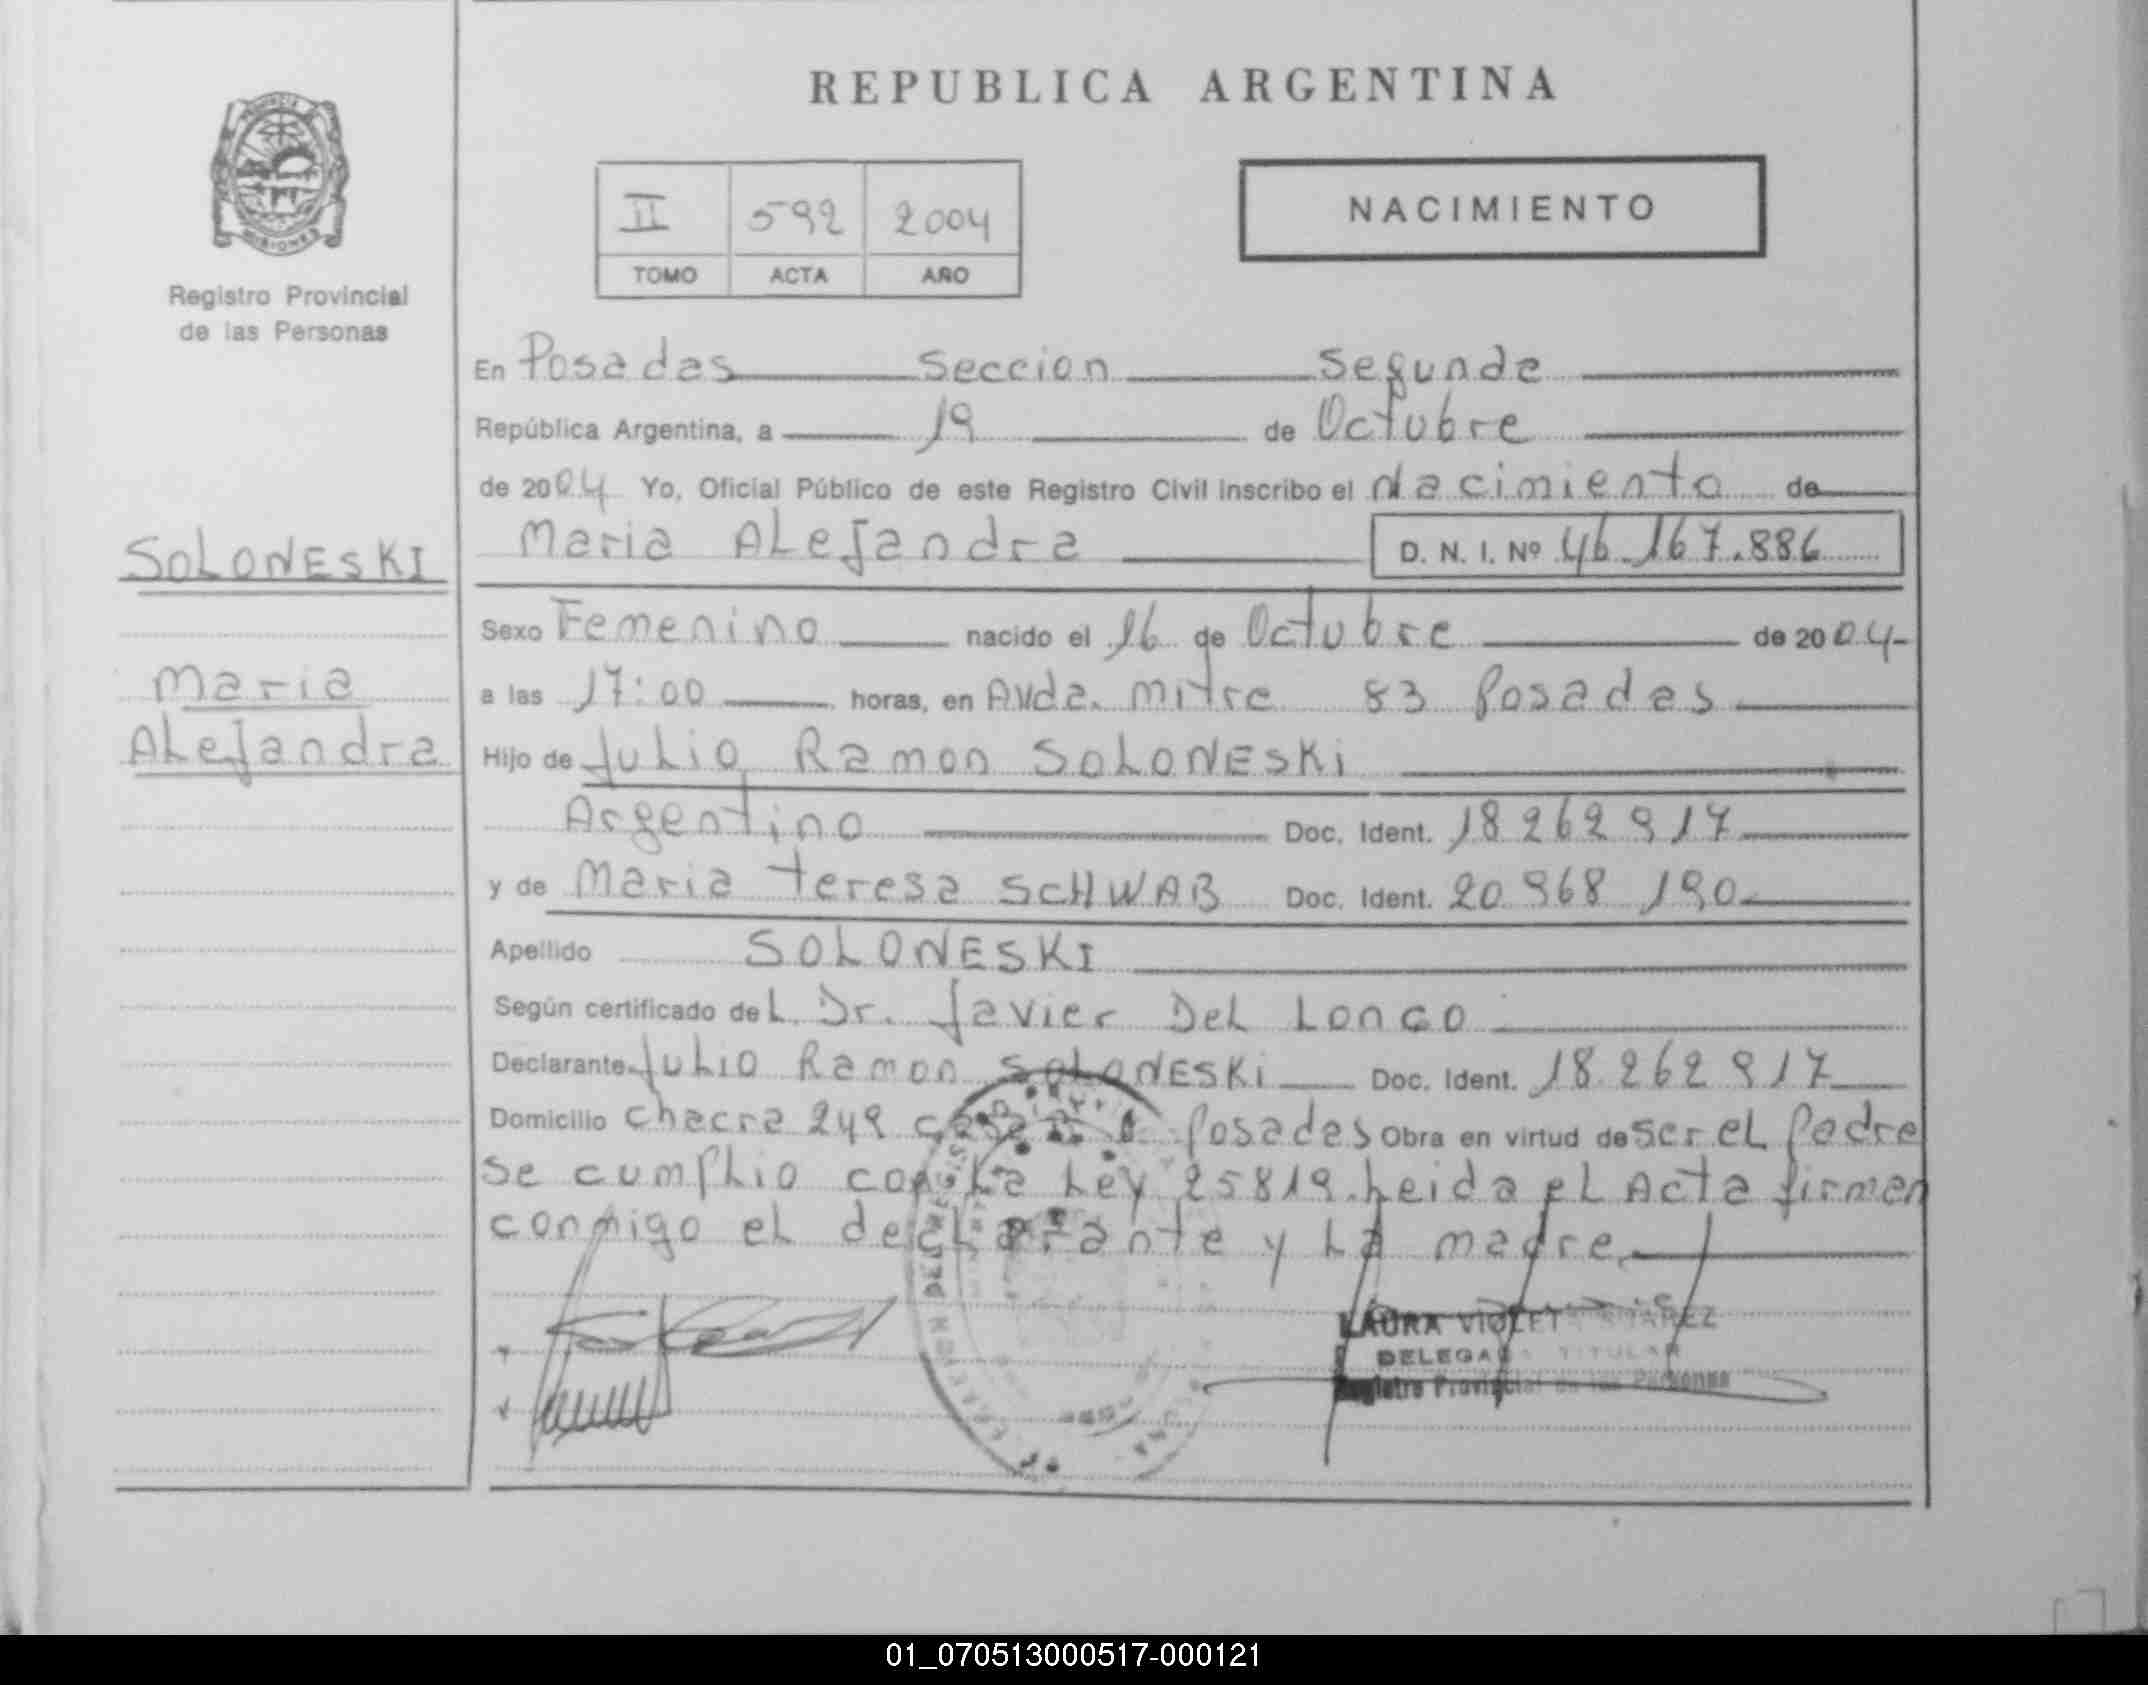 REPUBLICA ARGENTINA
MISIONES
Registro Provincial
de las Personas
II 592 2004
TOMO ACTA AÑO
NACIMIENTO
En Posadas Seccion Segunda
República Argentina, a 19 de Octubre
de 2004 Yo, Oficial Público de este Registro Civil inscribo el Nacimiento de
Maria Alejandra D. N. I. Nº 46.167.886
SOLONESKI
Maria
Alejandra
Sexo Femenino nacido el 16 de Octubre de 2004-
a las 17:00 horas, en Avda. Mitre 83 Posadas
Hijo de Julio Ramon SOLONESKi
Argentino Doc. Ident. 18 262 917
y de Maria Teresa SCHWAB Doc. Ident. 20 968 190
Apellido SOLONESKI
Según certificado deL Dr. Javier Del Longo
Declarante Julio Ramon SOLONESKi Doc. Ident. 18 262 917
Domicilio Chacra 249 Posadas Obra en virtud de ser el Padre
Se cumplio con La Ley 25819. Leida el Acta firman
conmigo el declarante y La madre
LAURA VIOLETA SUAREZ
DELEGADA TITULAR
Registro Provincial de las Personas
01_070513000517-000121